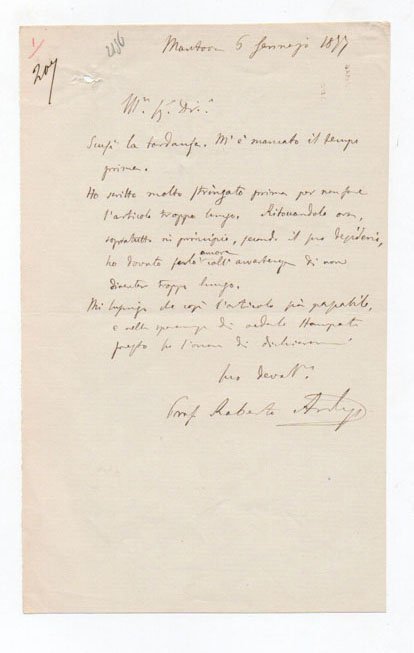 1/
207
286
Mantova 6 Gennajo 1877
M.o Sr. Dr.e
Scusi la tardanza. M'è mancato il tempo
prima.
Ho scritto molto stringato prima per non fare
l'articolo troppo lungo. Ritoccandolo ora,
sopratutto in principio, secondo il suo desiderio,
ho dovuto farlo ancora coll'avvertenza di non
diventar troppo lungo.
Mi lusingo che così l'articolo sia passabile,
e nella speranza di vederlo stampato
presto ho l'onore di dichiararmi
suo devot.o
Prof. Roberto Ardigò